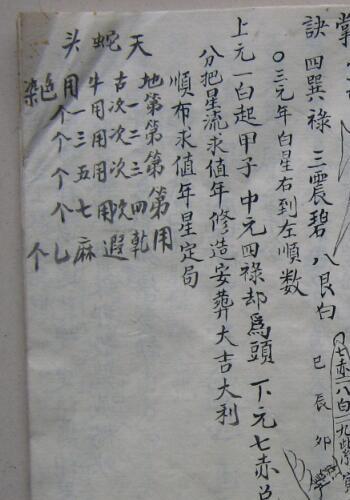 掌
訣 四巽祿 三震碧 八艮白
〇三元年白星右到左順數
上元一白起甲子 中元四祿却為頭 下元七赤
分把星流求值年修造安葬大吉大利
順布求值年星定局
天蛇头
地古牛用色染
第一次用一个
第二次用三个
第三次用五个
第四次用七个
用乾遐麻七个
七赤 八白 九紫
巳 辰 卯